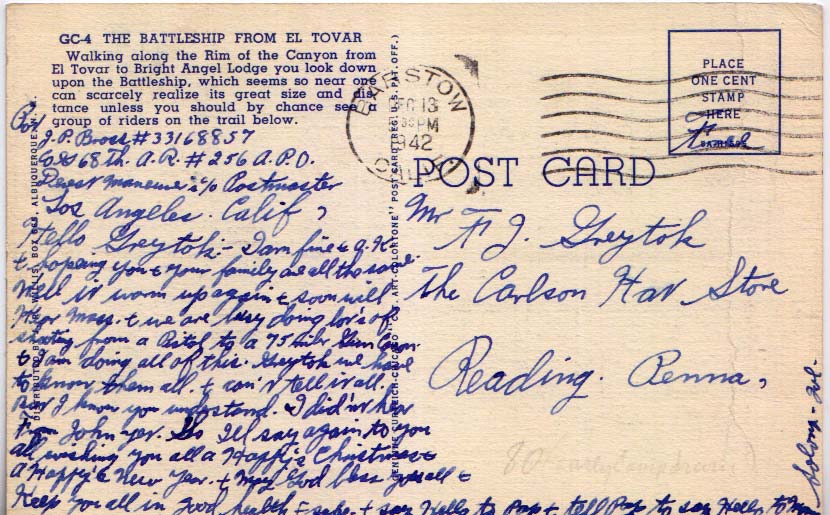 GC-4 THE BATTLESHIP FROM EL TOVAR
Walking along the Rim of the Canyon from
El Tovar to Bright Angel Lodge you look down
upon the Battleship, which seems so near one
can scarcely realize its great size and dis-
tance unless you should by chance see a
group of riders on the trail below.
J.P. Bross #33168857
68th. A.R. #256 A.P.O.
Desert Maneuver c/o Postmaster
Los Angeles. Calif,
Hello Greytok - I am fine & O.K.
& hoping you & your family are all the same.
Well it warm up again & soon will
Hear Mass. & we are busy doing lots of
shooting from a Pistol to a 75 Gun
& I am doing all of this. Greytok we have
to know them all. & can't tell it all.
But I know you understand. I did'nt hear
from John yet. So I'll say again to you
all wishing you all a Happy Christmas &
a Happy New Year. & May God bless you all &
Keep you all in good health & safe. & say Hello to Pop & tell Pop to say Hello to Mom
BARSTOW
DEC 13
PM
1942
CALIF.
PLACE
ONE CENT
STAMP
HERE
Free
POST CARD
Mr F J. Greytok
The Carlson Hat Store
Reading. Penna,